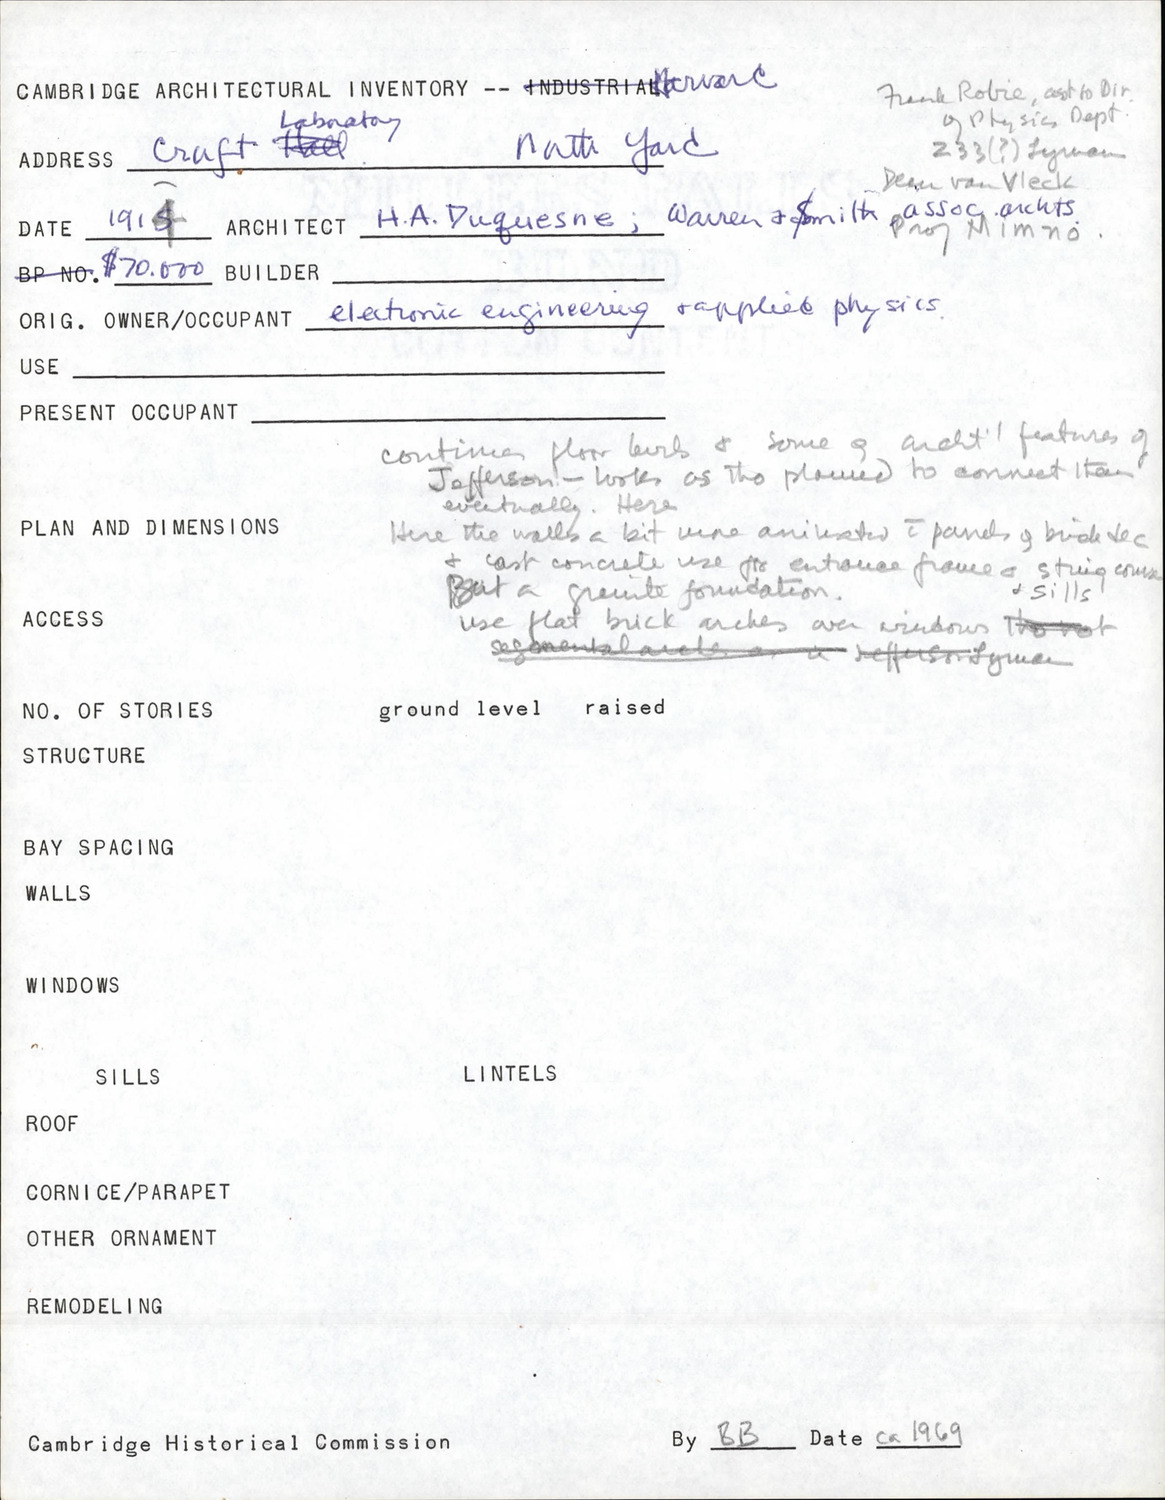 CAMBRIDGE ARCHITECTURAL INVENTORY -- INDUSTRIAL Harvard
Frank Robie, asst to Dir.
of Physics Dept.
233(?) Lyman
Dean van Vleck
Prof Mimno.
Laboratory
ADDRESS Cruft Hall North Yard
DATE 1914 ARCHITECT H.A. Duquesne; Warren & Smith assoc. archts.
BP NO. $70.000 BUILDER
ORIG. OWNER/OCCUPANT electronic engineering & applied physics.
USE
PRESENT OCCUPANT
continues floor levels & some of archt'l features of
Jefferson – looks as tho planned to connect them
eventually. Here
PLAN AND DIMENSIONS
Here the walls a bit more animated c̄ panels of brick dec
& cast concrete use for entrance frame & string course
& sills
But a granite foundation.
ACCESS
use flat brick arches over windows tho not
segmental arch as in Jefferson Lyman
NO. OF STORIES ground level raised
STRUCTURE
BAY SPACING
WALLS
WINDOWS
SILLS LINTELS
ROOF
CORNICE/PARAPET
OTHER ORNAMENT
REMODELING
Cambridge Historical Commission By BB Date ca 1969